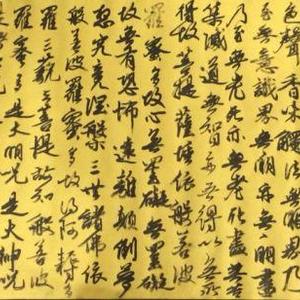 色聲香味觸法無眼界乃
至無意識界無明亦無明盡
乃至無老死亦無老死盡無苦
集滅道無智亦無得以無所
得故菩提薩埵依般若波
羅蜜多故心無罣礙無罣礙
故無有恐怖遠離顛倒夢
想究竟涅槃三世諸佛依
般若波羅蜜多故得阿耨多
羅三藐三菩提故知般若波
羅蜜多是大明咒是大神咒